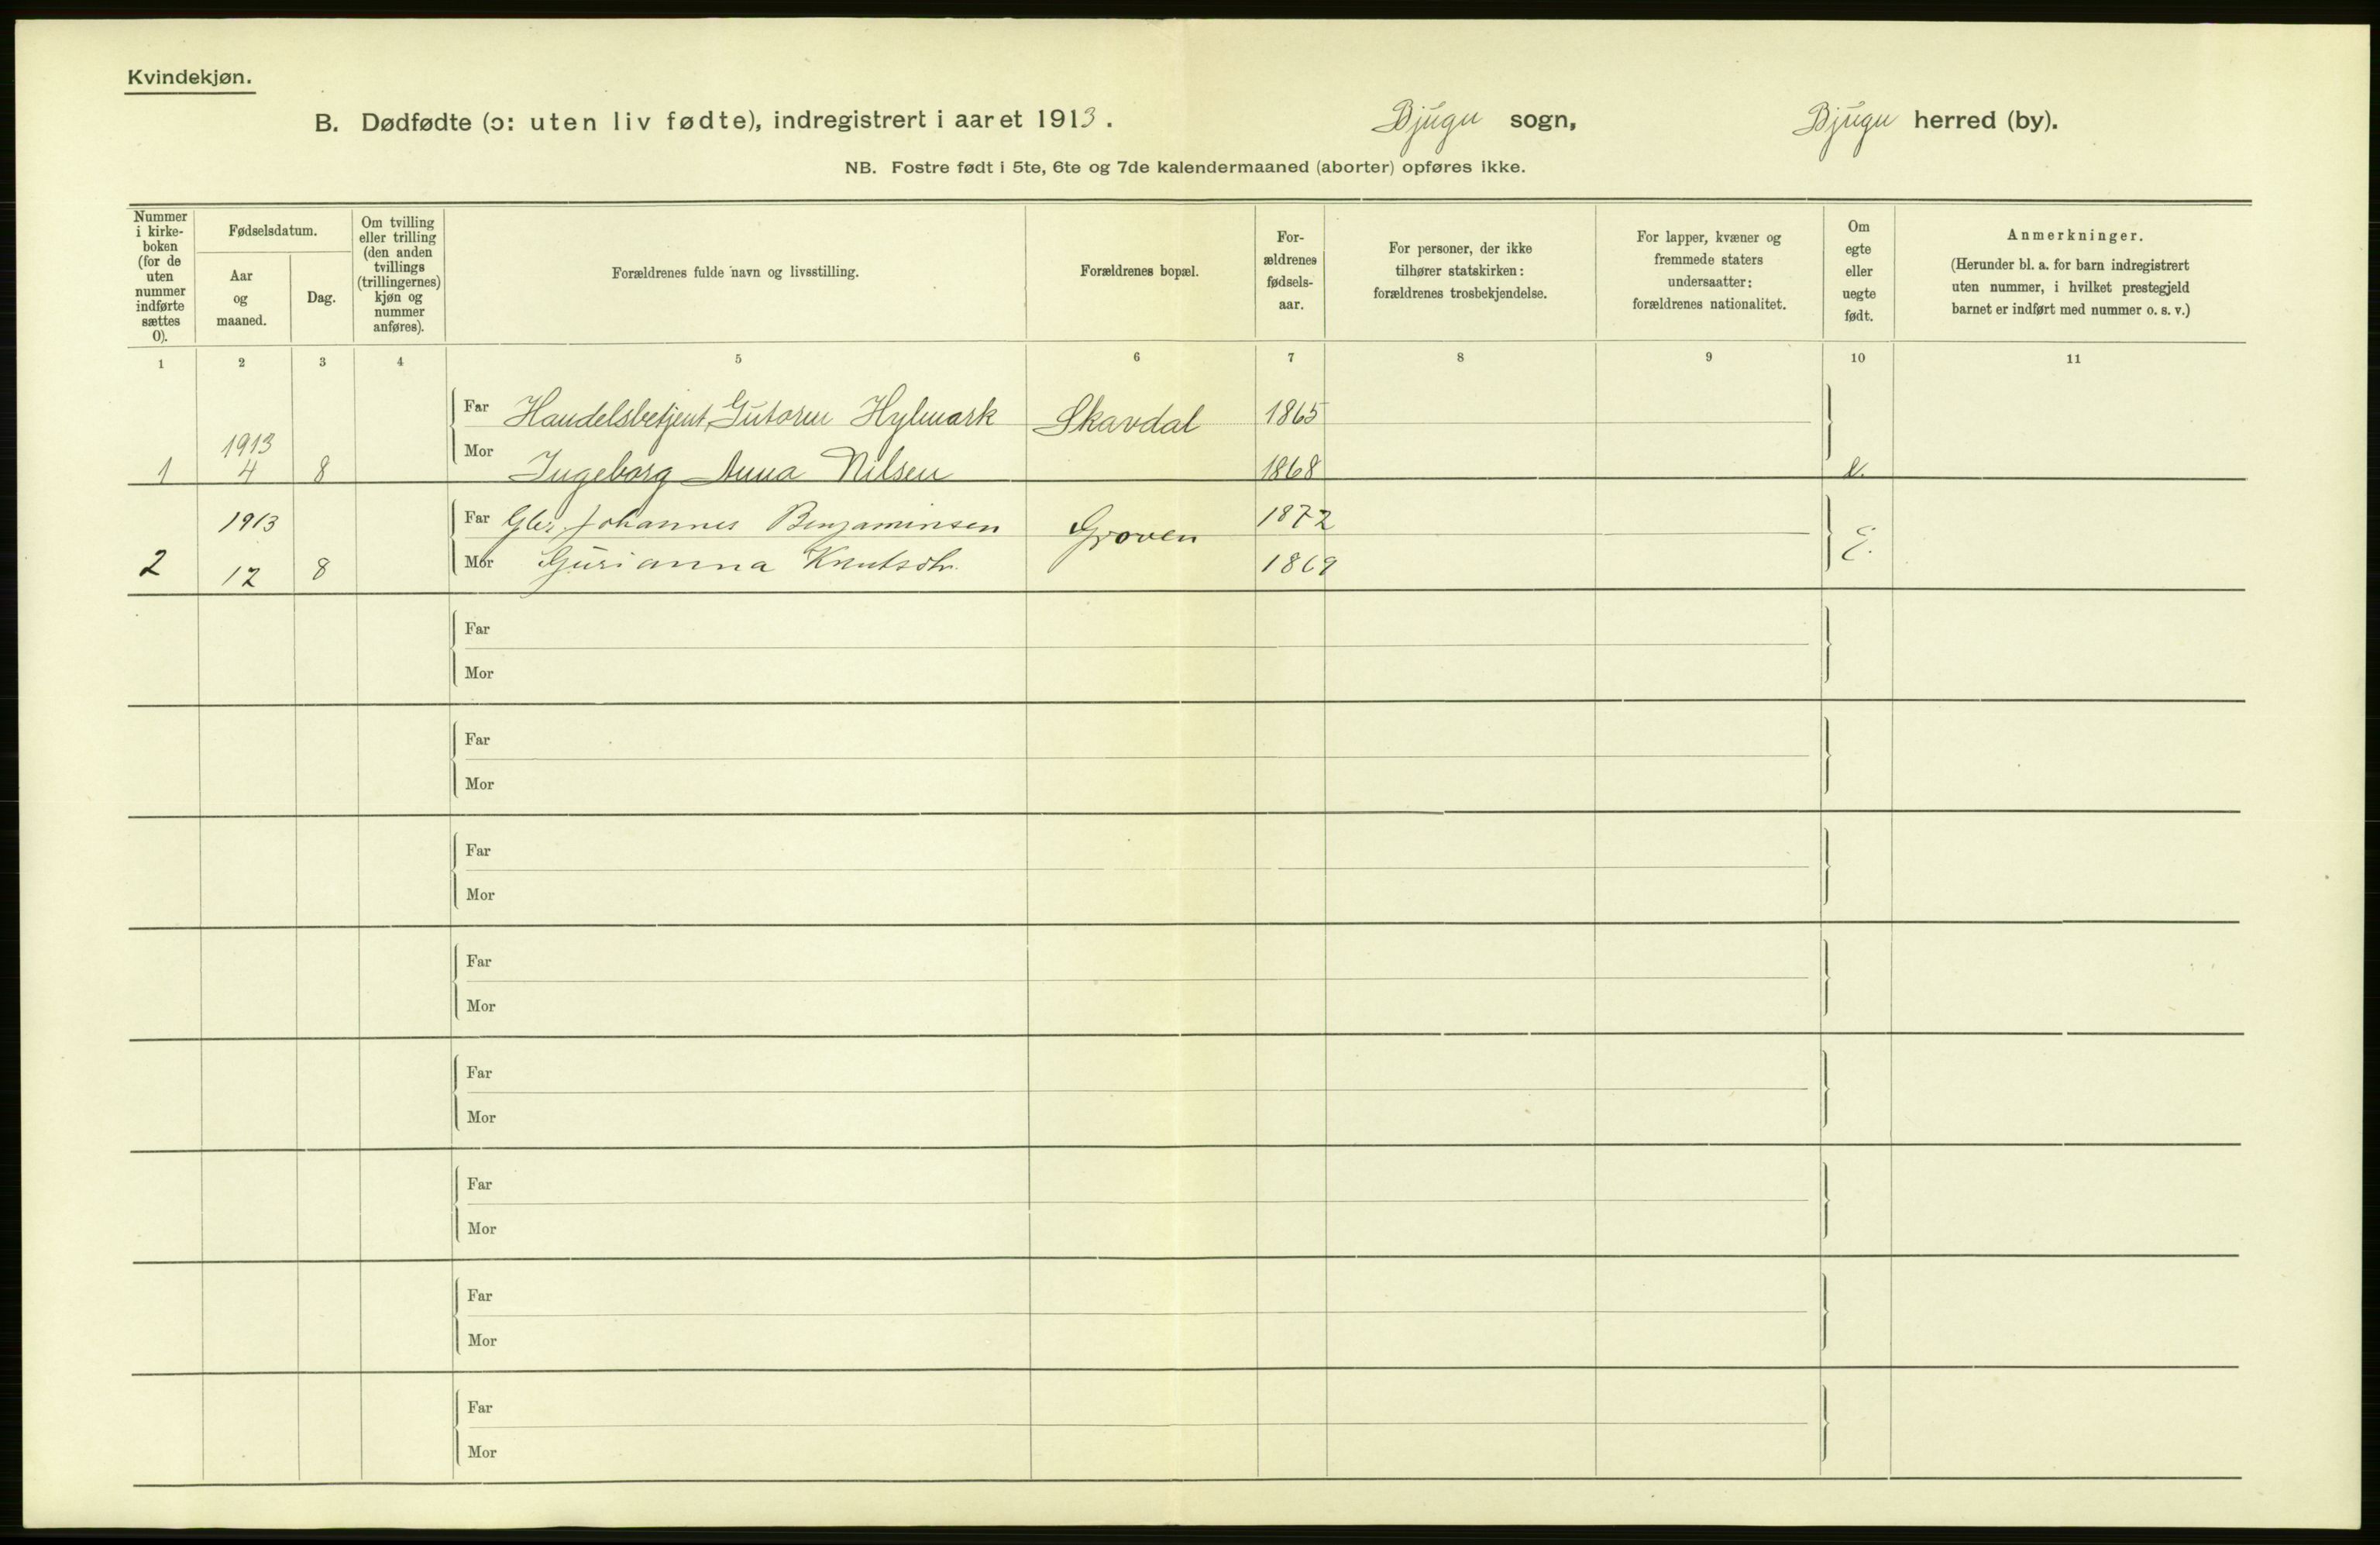 Kvindekjøn.
B. Dødfødte (ɔ: uten liv fødte), indregistrert i aaret 1913. Bjugn sogn, Bjugn herred (by).
NB. Fostre født i 5te, 6te og 7de kalendermaaned (aborter) opføres ikke.
Nummer i kirke-boken (for de uten nummer indførte sættes 0).
Fødselsdatum.
Aar og maaned.
Dag.
Om tvilling eller trilling (den anden tvillings (trillingernes) kjøn og nummer anføres).
Forældrenes fulde navn og livsstilling.
Forældrenes bopæl.
For-ældrenes fødsels-aar.
For personer, der ikke tilhører statskirken: forældrenes trosbekjendelse.
For lapper, kvæner og fremmede staters undersaatter: forældrenes nationalitet.
Om egte eller uegte født.
Anmerkninger.
(Herunder bl. a. for barn indregistrert uten nummer, i hvilket prestegjeld barnet er indført med nummer o. s. v.)
1 2 3 4 5 6 7 8 9 10 11
Far Handelsbetjent Gutorm Hylmark Skavdal 1865
1913
Mor
1 4 8 Ingeborg Anna Nilsen 1868 e.
1913 Far Johannes Benjaminsen Groven 1872
2 12 8 Mor Gurianna Knutsdtr. 1869 E.
Far
Mor
Far
Mor
Far
Mor
Far
Mor
Far
Mor
Far
Mor
Far
Mor
Far
Mor